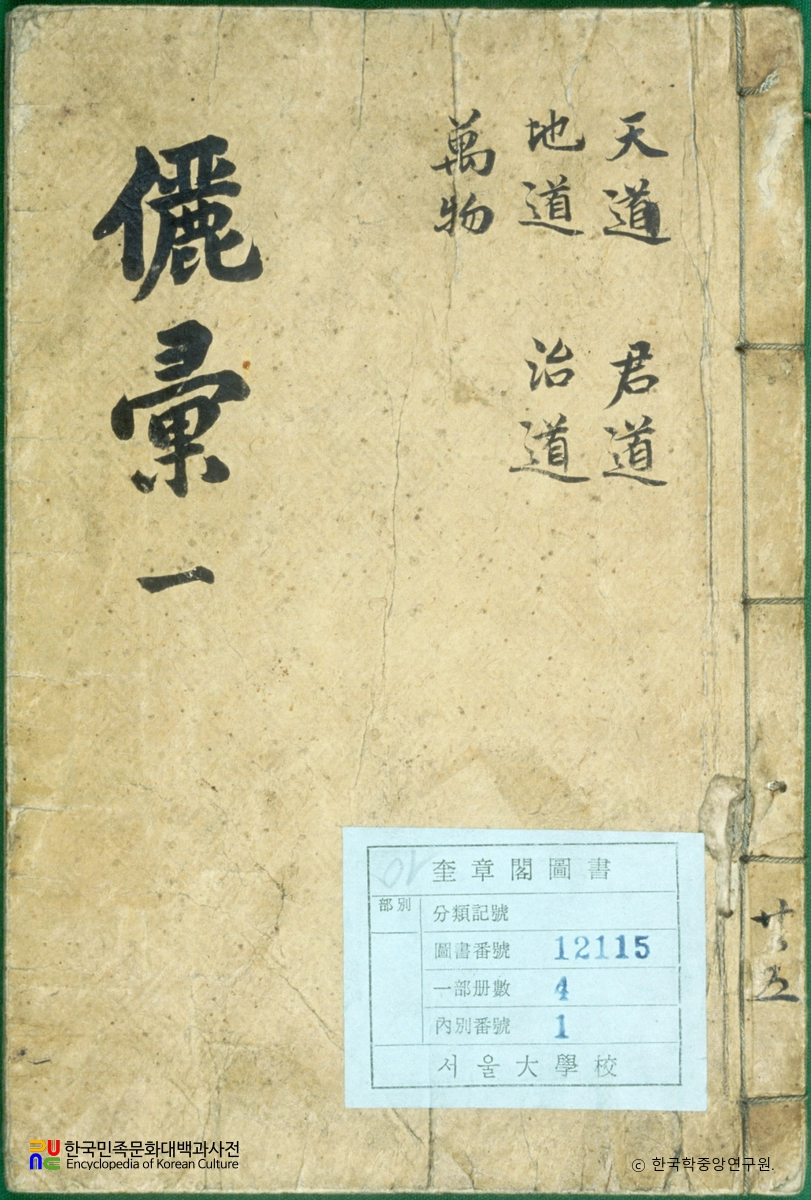 天道 君道
地道 治道
萬物
儷彙 一
奎章閣圖書
部別
分類記號
圖書番號 12115
一部册數 4
內別番號 1
서울大學校
10
共五
한국민족문화대백과사전
Encyclopedia of Korean Culture
© 한국학중앙연구원.